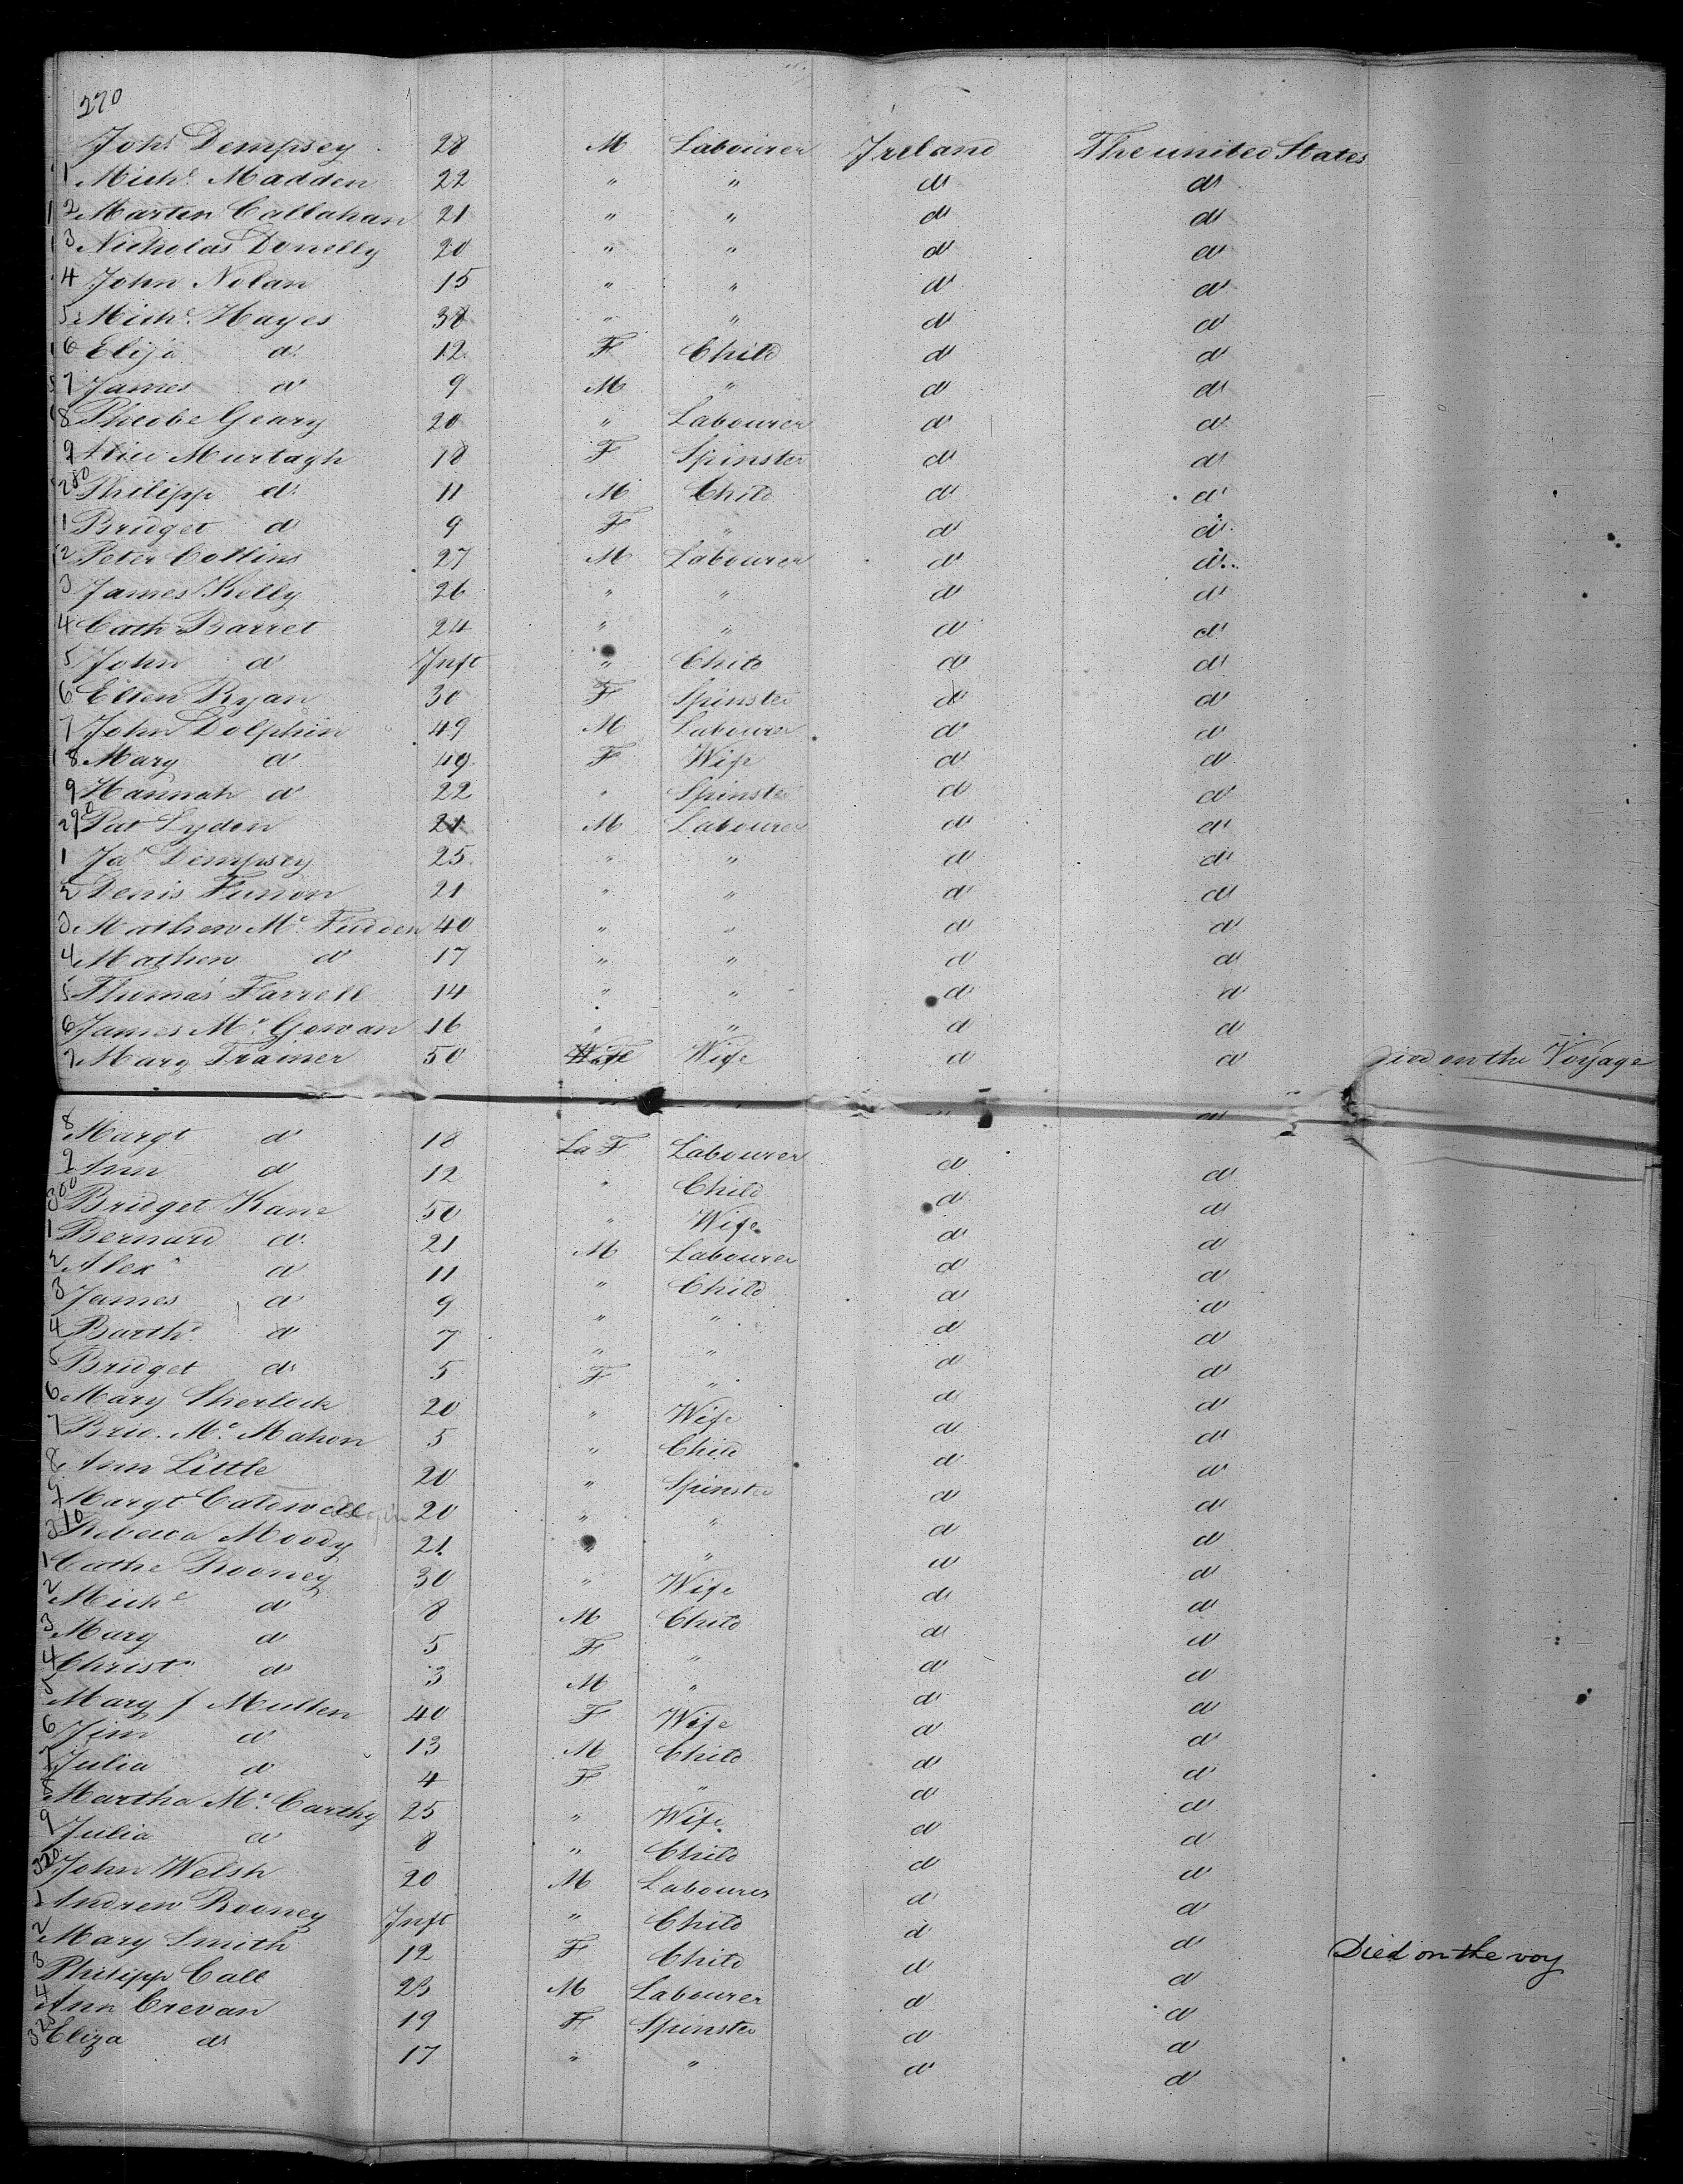 270
John Dempsey 28 M Labourer Ireland The united States
1 Michl. Madden 22 " " do do
2 Martin Callahan 21 " " do do
3 Nicholas Donelly 20 " " do do
4 John Nolan 15 " " do do
5 Michl. Hayes 38 " " do do
6 Eliza do 12 F Child do do
7 James do 9 M " do do
8 Pheobe Geary 20 " Labourer do do
9 Alice Murtagh 18 F Spinster do do
280 Philipp do 11 M Child do do
1 Bridget do 9 F " do do
2 Peter Collins 27 M Labourer do do
3 James Kelly 26 " " do do
4 Cath Barret 24 " " do do
5 John do Inft " Child do do
6 Ellen Ryan 30 F Spinster do do
7 John Dolphin 49 M Labourer do do
8 Mary do 49 F Wife do do
9 Hannah do 22 " Spinster do do
290 Pat Lyden 21 M Labourer do do
1 Jas Dempsey 25 " " do do
2 Denis 21 " " do do
3 Mathew Mc. Fudden 40 " " do do
4 Mathew do 17 " " do do
5 Thomas Farrell 14 " " do do
6 James Mc. Gowan 16 " " do do
7 Mary Trainer 50 F Wife do do Died on the Voyage
8 Margt do 18 La F Labourer do do
9 Ann do 12 " Child do do
300 Bridget Kane 50 " Wife do do
1 Bernard do 21 M Labourer do do
2 Alexr do 11 " Child do do
3 James do 9 " " do do
4 Barthw do 7 " " do do
5 Bridget do 5 F " do do
6 Mary Sherlock 20 " Wife do do
7 Brid. Mc. Mahon 5 " Child do do
8 Ann Little 20 " Spinster do do
9 Margt Caldwell 20 " " do do
310 Rebecca Moody 21 " " do do
1 Cathe Rooney 30 " Wife do do
2 Michl do 8 M Child do do
3 Mary do 5 F " do do
4 Christn do 3 M " do do
5 Mary J Mullen 40 F Wife do do
6 Jim do 13 M Child do do
7 Julia do 4 F " do do
8 Martha Mc. Carthy 25 " Wife do do
9 Julia do 8 " Child do do
320 John Welsh 20 M Labourer do do
1 Andrew Rooney Inft " Child do do
2 Mary Smith 12 F Child do do Died on the voy
3 Philipp Call 23 M Labourer do do
4 Ann Crevan 19 F Spinster do do
325 Eliza do 17 " " do do